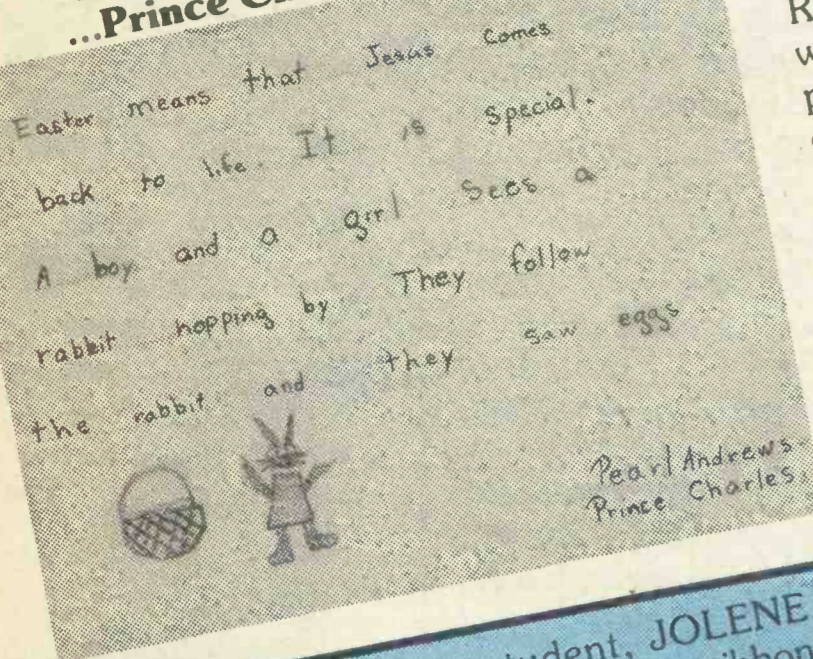 ...Prince
Easter means that Jesus comes
back to life. It is special.
A boy and a girl sees a
rabbit hopping by. They follow
the rabbit and they saw eggs
Pearl Andrews.
Prince Charles.
JOLENE